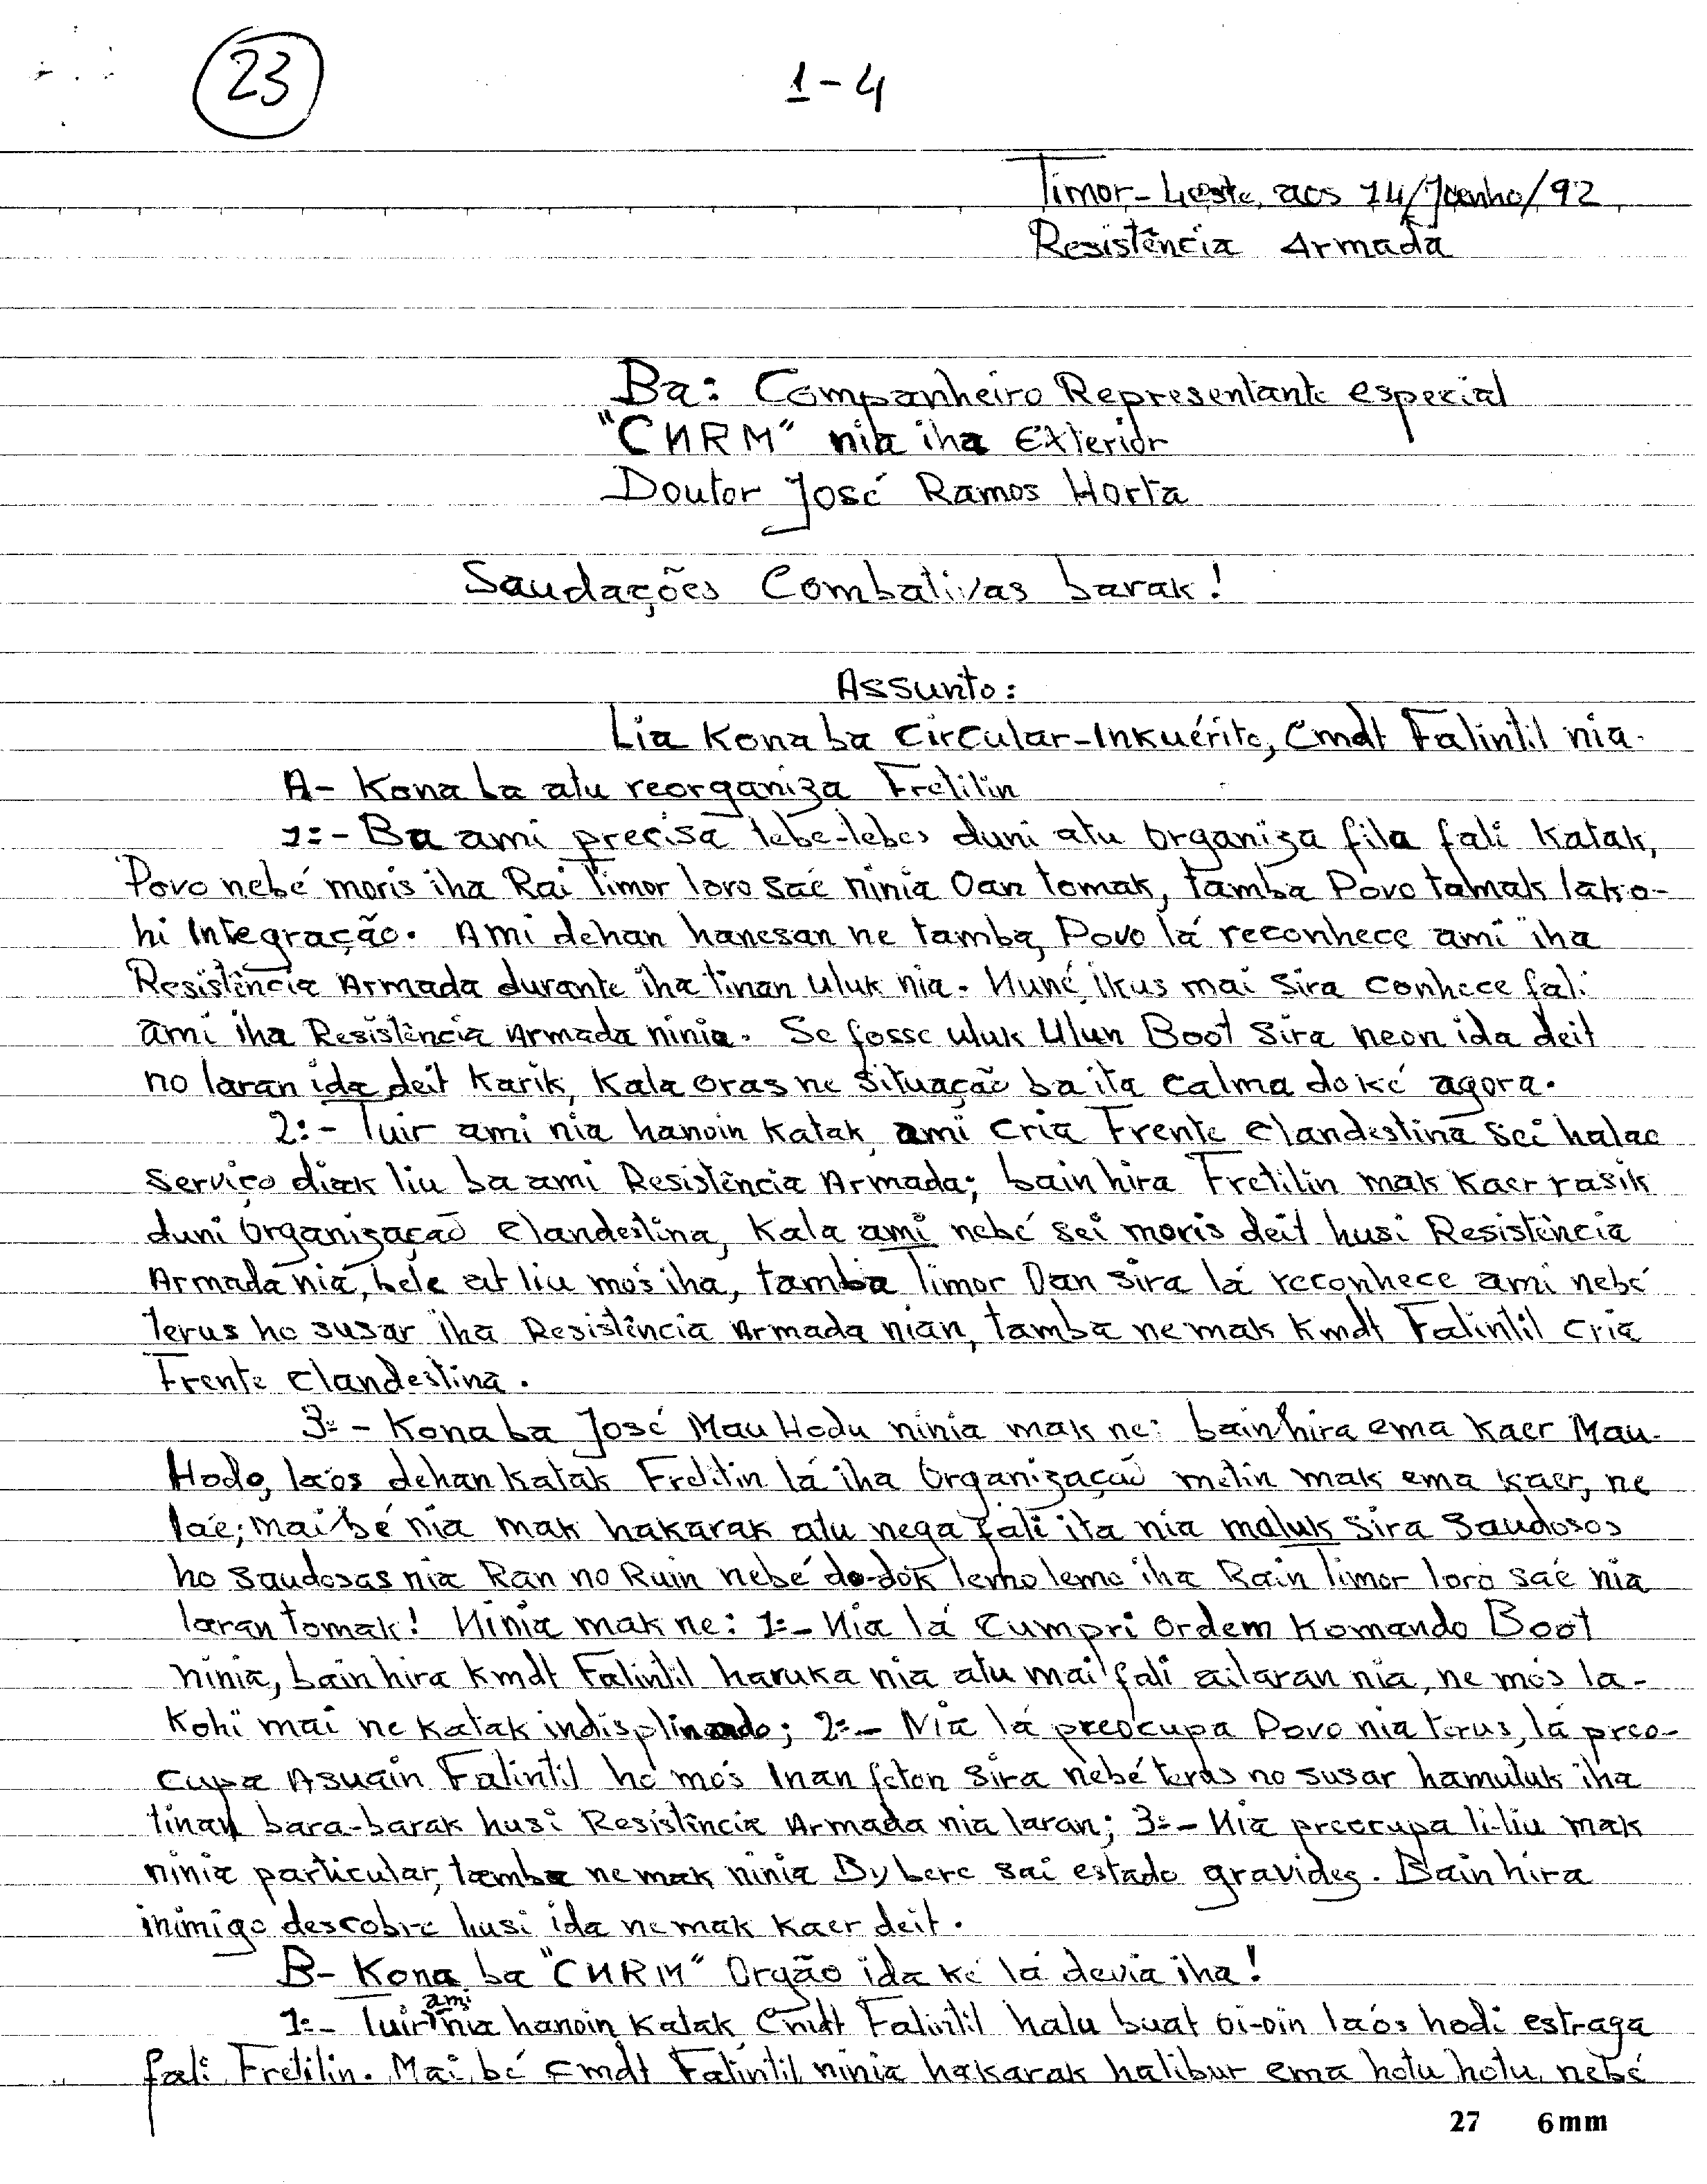 23
1-4
Timor-Leste, aos 14/Junho/92
Resistência Armada
Ba: Companheiro Representante especial
"CNRM" nia iha Exterior
Doutor José Ramos Horta
Saudações Combativas barak!
Assunto:
Lia Kona ba Circular-Inkuérito, Cmdt Falintil nia.
A- Kona ba atu reorganiza Fretilin
1:- Ba ami precisa lebe-lebes duni atu Organiza fila fali Katak,
Povo nebé moris iha Rai Timor loro saé ninia Oan tomak, tamba Povo tomak lako-
hi Integração. Ami dehan hanesan ne tamba, Povo lá reconhece ami iha
Resistência Armada durante iha tinan uluk nia. Nuné, ikus mai sira conhece fali
ami iha Resistência Armada ninia. Se fosse uluk Ulun Boot sira neon ida deit
no laran ida deit Karik, Kala oras ne situação ba ita calma do ké agora.
2:- Tuir ami nia hanoin Katak, ami cria Frente Clandestina sei halao
serviço diak liu ba ami Resistência Armada; bainhira Fretilin mak Kaer rasik
duni Organização Clandestina, Kala ami nebé sei moris deit husi Resistência
Armada nia, bele at liu mós iha, tamba Timor Oan sira lá reconhece ami nebé
terus ho susar iha Resistência Armada nian, tamba ne mak Kmdt Falintil cria
Frente Clandestina.
3:- Kona ba José Mau Hodu ninia mak ne: bainhira ema Kaer Mau-
Hodo, laós dehan Katak Fretilin lá iha Organização metin mak ema Kaer, ne
láe; mai bé nia mak hakarak atu nega fali ita nia maluk sira Saudosos
ho Saudosas nia Ran no Ruin nebé do-dok lemo lemo iha Rain Timor loro saé nia
laran tomak! Ninia mak ne: 1:- Nia lá Cumpri Ordem Komando Boot
ninia, bainhira Kmdt Falintil haruka nia atu mai fali ailaran nia, ne mós la-
Kohi mai ne Katak indisplinado; 2:- Nia lá preocupa Povo nia terus, lá preo-
cupa Asuain Falintil ho mós Inan feton sira nebé terus no susar hamutuk iha
tinan bara-barak husi Resistência Armada nia laran; 3:- Nia preocupa li-liu mak
ninia particular, tamba ne mak ninia Bybere sai estado gravidez. Bainhira
inimigo descobre husi ida ne mak Kaer deit.
B- Kona ba "CNRM" Orgão ida ké lá devia iha!
1:- Tuir ami nia hanoin Katak Cmdt Falintil halu buat oi-oin laós hodi estraga
fali Fretilin. Mai bé Cmdt Falintil ninia hakarak halibur ema hotu hotu, nebé
27 6mm